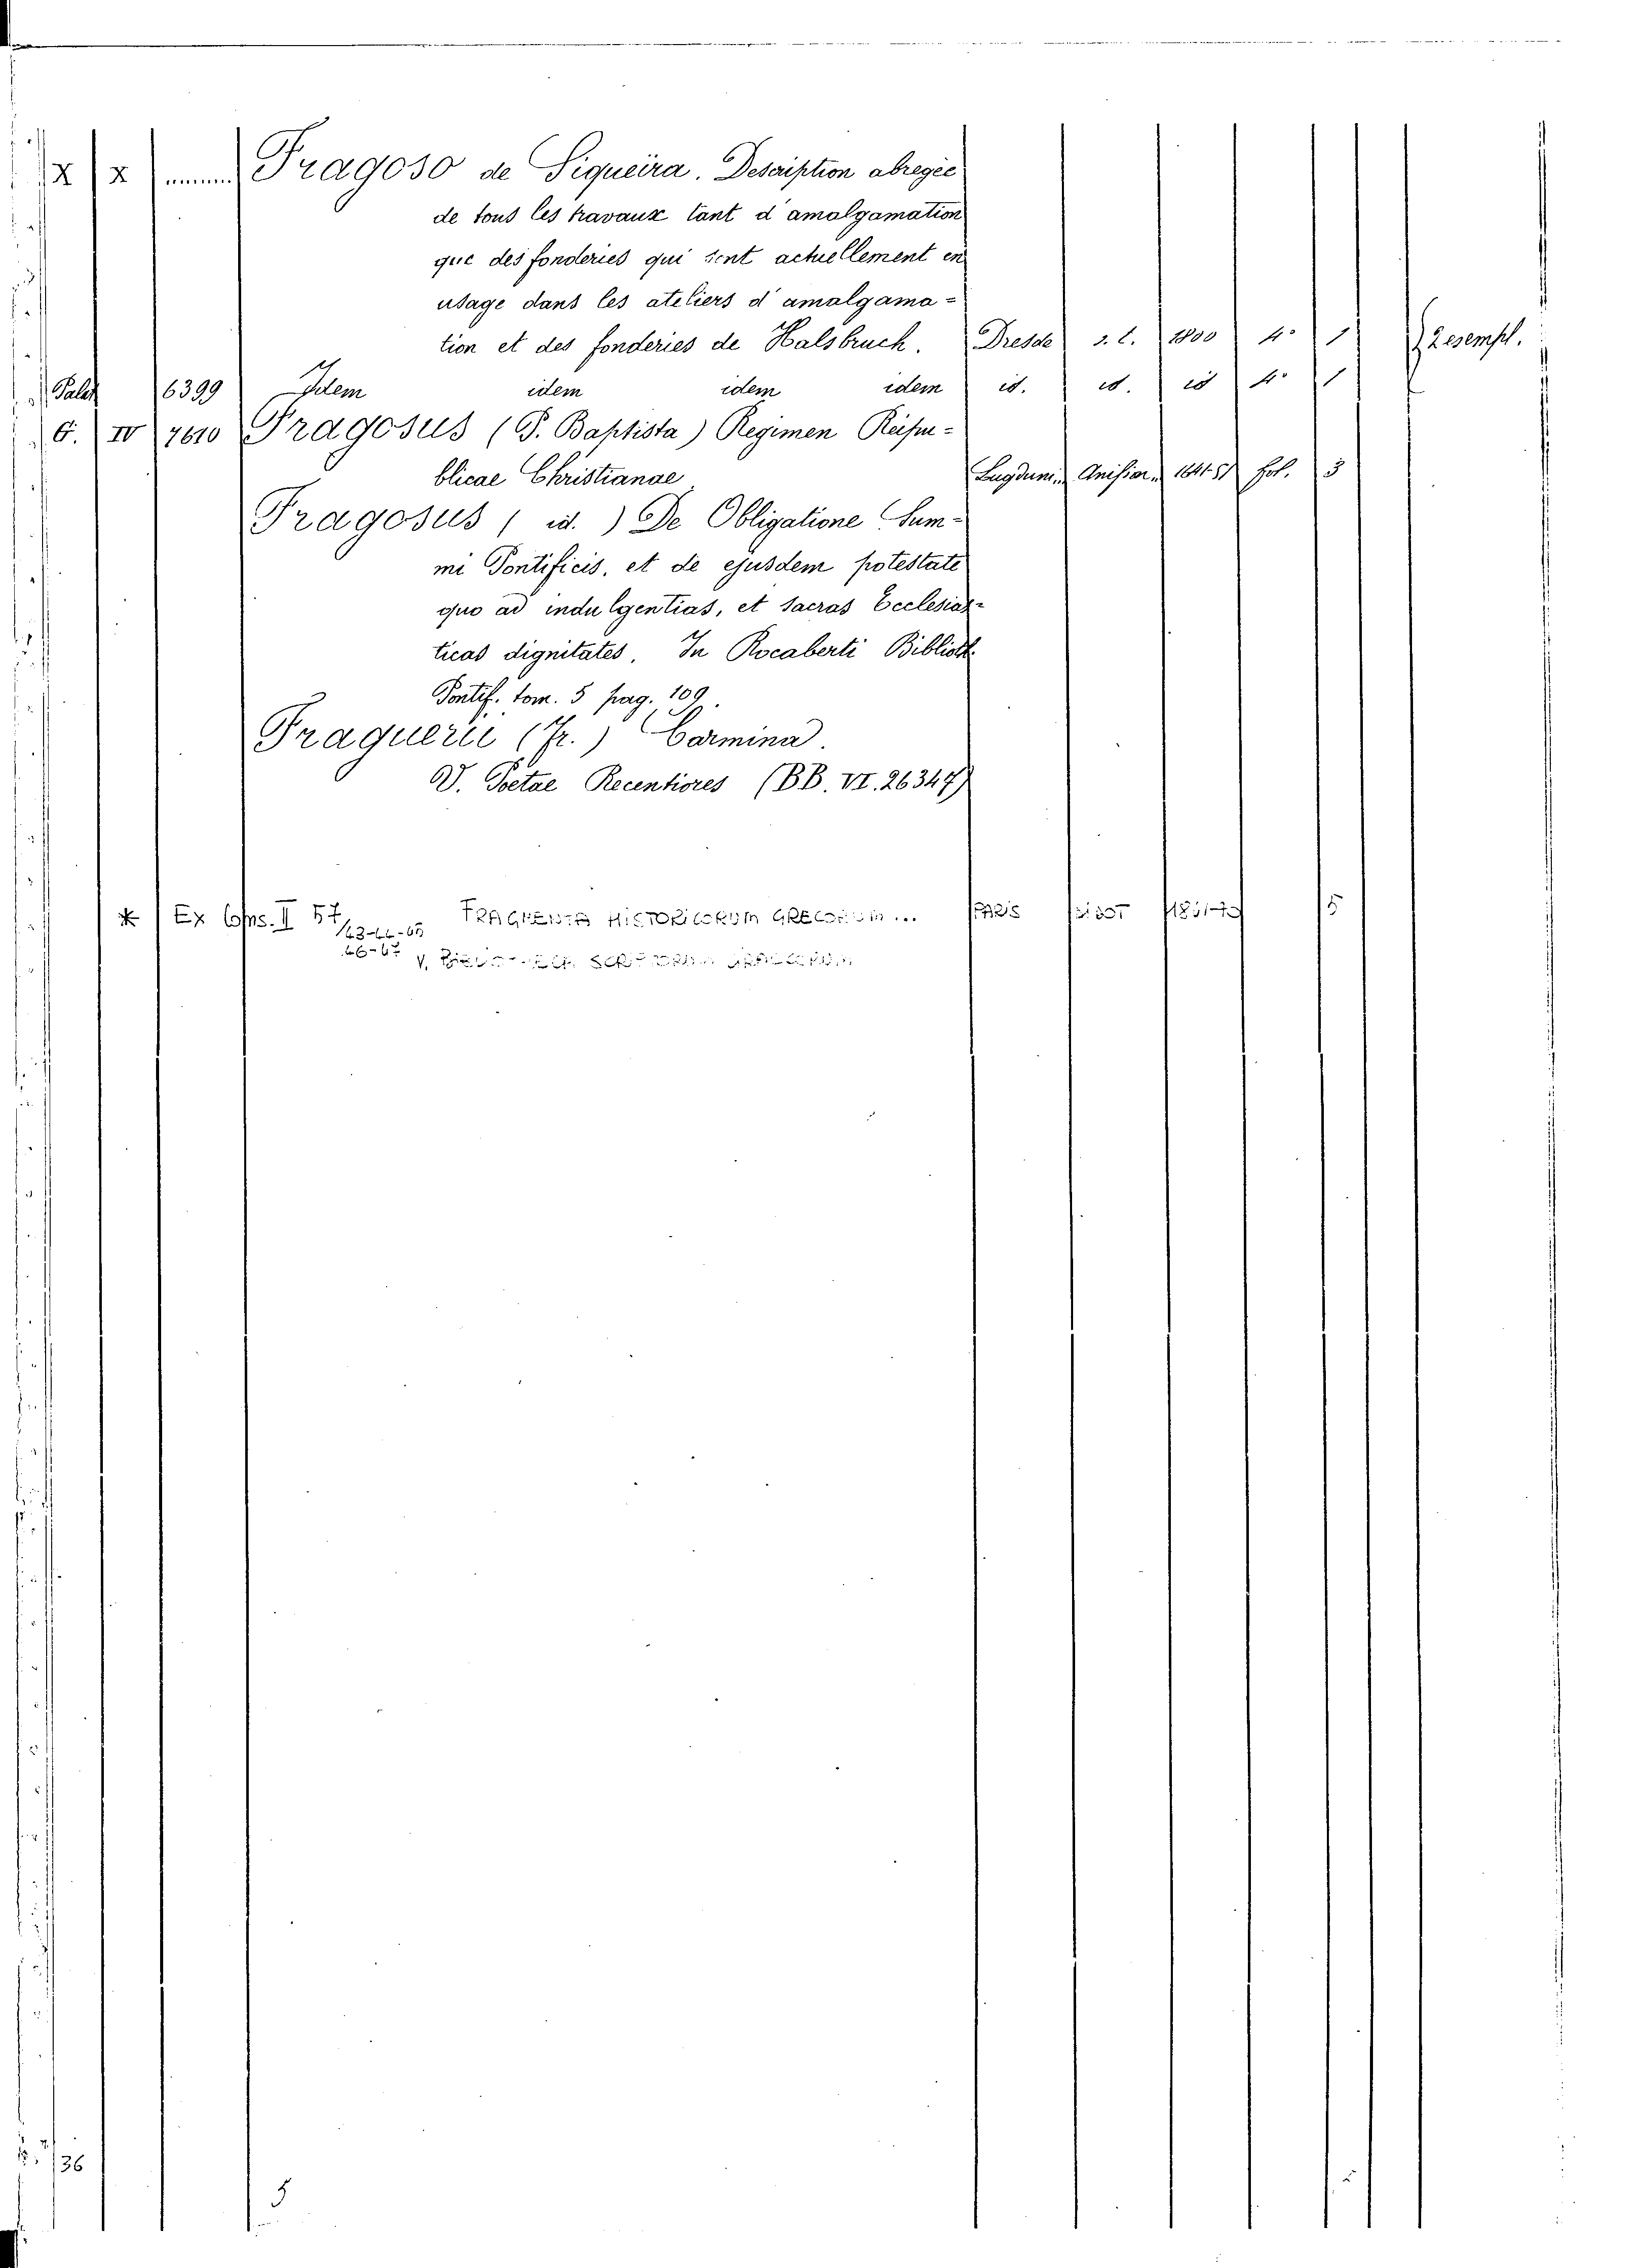 X X ........ Fragoso de Siqueira. Description abregée
de tous les travaux tant d'amalgamation
que des fonderies qui sont actuellement en
usage dans les ateliers d'amalgama=
tion et des fonderies de Halsbruch. Dresde s. l. 1800 4° 1 2 esempl.
Palat 6399 Idem idem idem idem id. id. id 4° 1
G. IV 7610 Fragosus (P. Baptista) Regimen Reipu=
blicae Christianae Lugduni Anision 1641-51 fol. 3
Fragosus (id.) De Obligatione Sum=
mi Pontificis, et de ejusdem potestate
quo ad indulgentias, et sacras Ecclesias=
ticas dignitates. In Rocaberti Biblioth.
Pontif. tom. 5 pag. 109.
Fraquerii (Fr.) Carmina.
V. Poetae Recentiores (BB. VI. 26347)
* Ex Cons. II 57/43-44-65 FRAGMENTA HISTORICORUM GRECORUM... PARIS DIDOT 5
46-47 V.
36
5